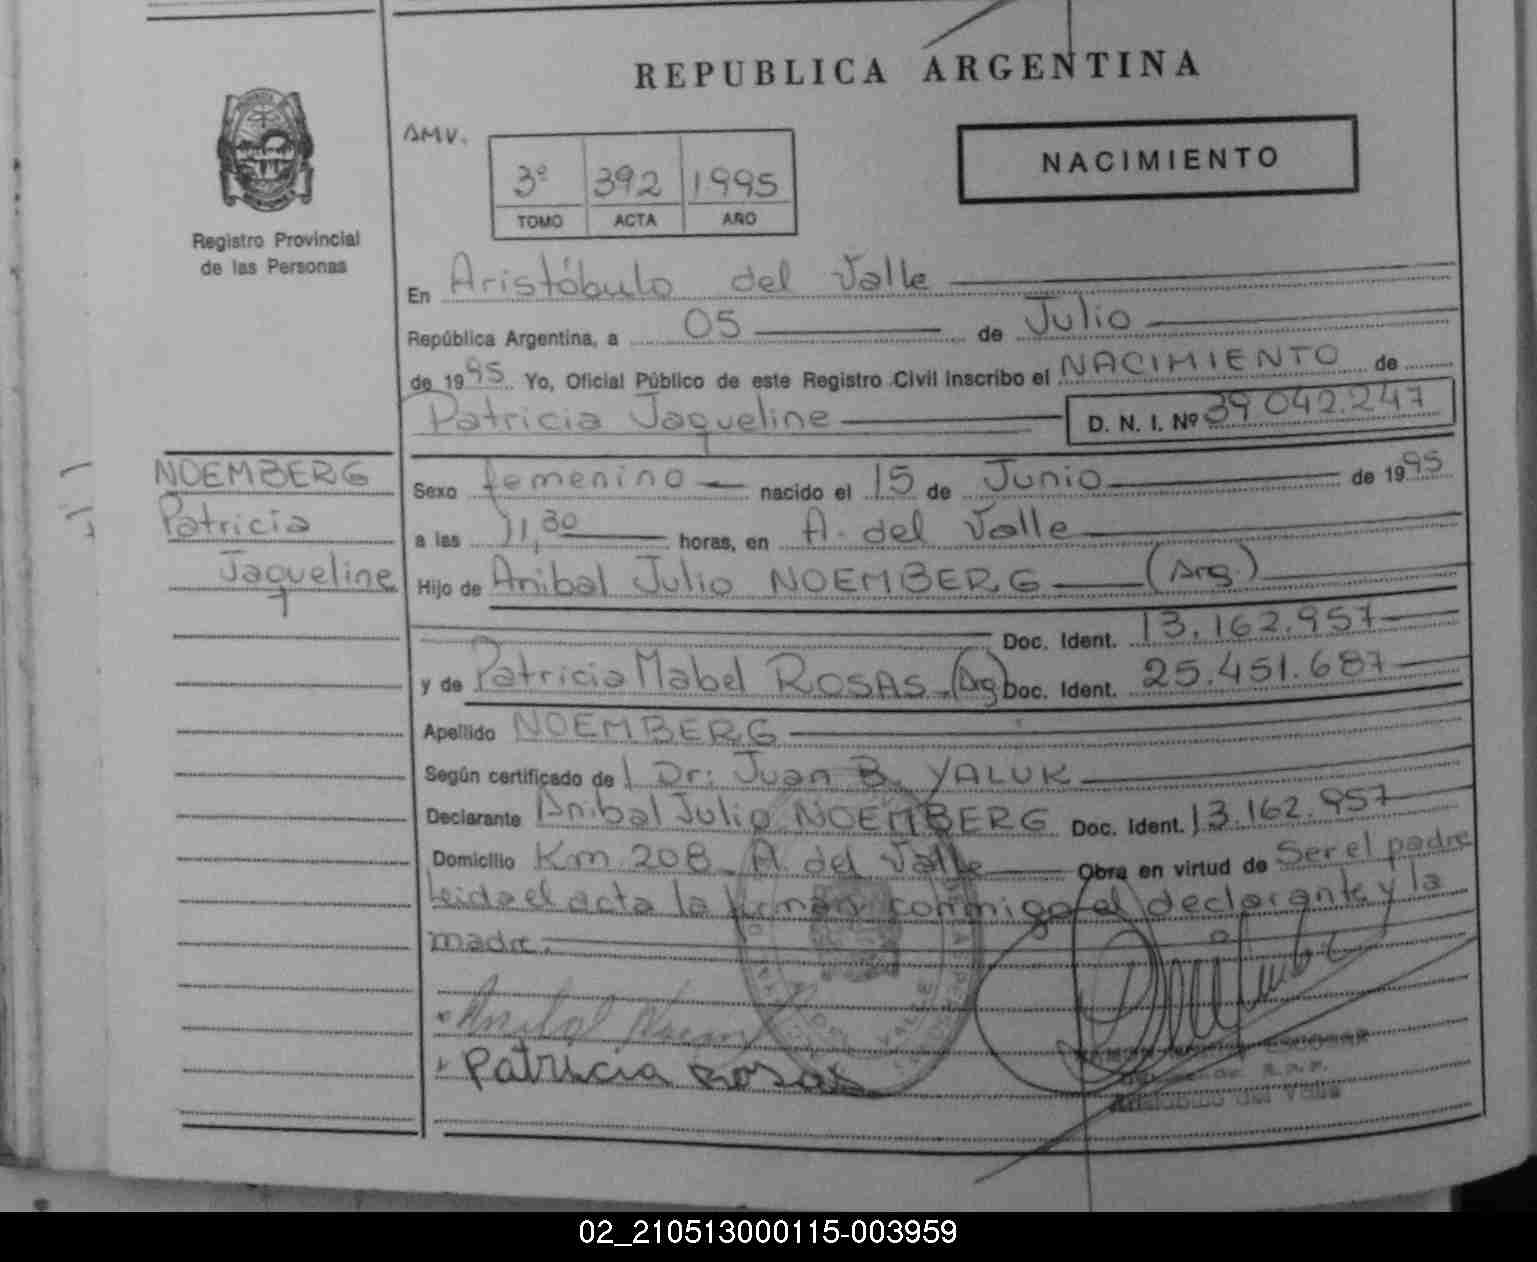 REPUBLICA ARGENTINA
AMV.
3º 392 1995
TOMO ACTA AÑO
NACIMIENTO
Registro Provincial
de las Personas
En Aristóbulo del Valle
República Argentina, a 05 de Julio
de 1995 Yo, Oficial Público de este Registro Civil inscribo el NACIMIENTO de
Patricia Jaqueline D. N. I. Nº 39.042.247
NOEMBERG
Patricia
Jaqueline
Sexo femenino nacido el 15 de Junio de 1995
a las 11,30 horas, en A. del Valle
Hijo de Anibal Julio NOEMBERG (Arg.)
Doc. Ident. 13.162.957
y de Patricia Mabel ROSAS (Arg) Doc. Ident. 25.451.687
Apellido NOEMBERG
Según certificado de l Dr: Juan B. YALUK
Declarante Anibal Julio NOEMBERG Doc. Ident. 13.162.957
Domicilio Km 208 A. del Valle Obra en virtud de Ser el padre
Leida el acta la firman conmigo el declarante y la
madre.
Anibal
Patricia Rosas
ESCOBAR
Aristobulo del Valle
02_210513000115-003959